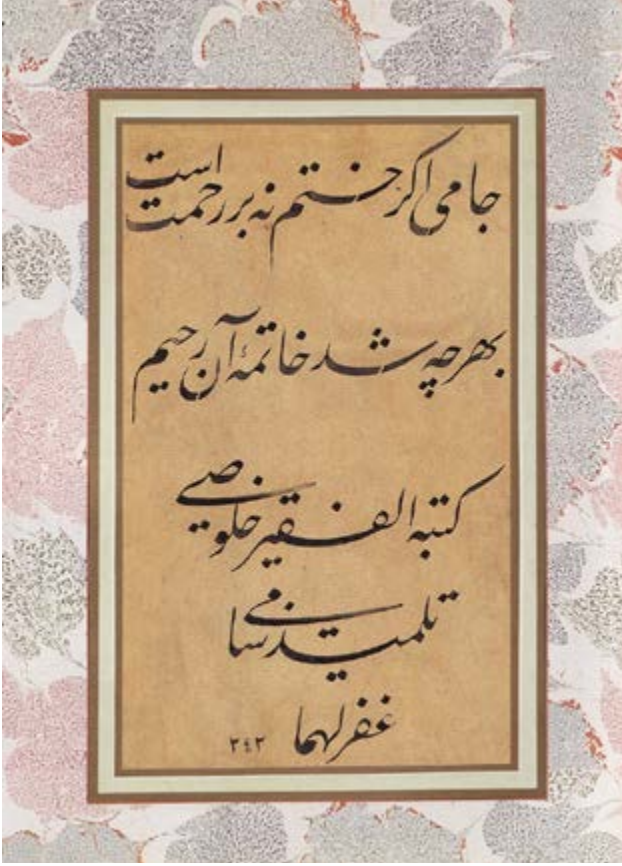 جامی اگر ختم نه بر رحمت است
بهر چه شد خاتمهٔ آن رحیم
کتبه الفقیر خلوصی
تلمیذ سامی
غفر لهما ٣٤٣